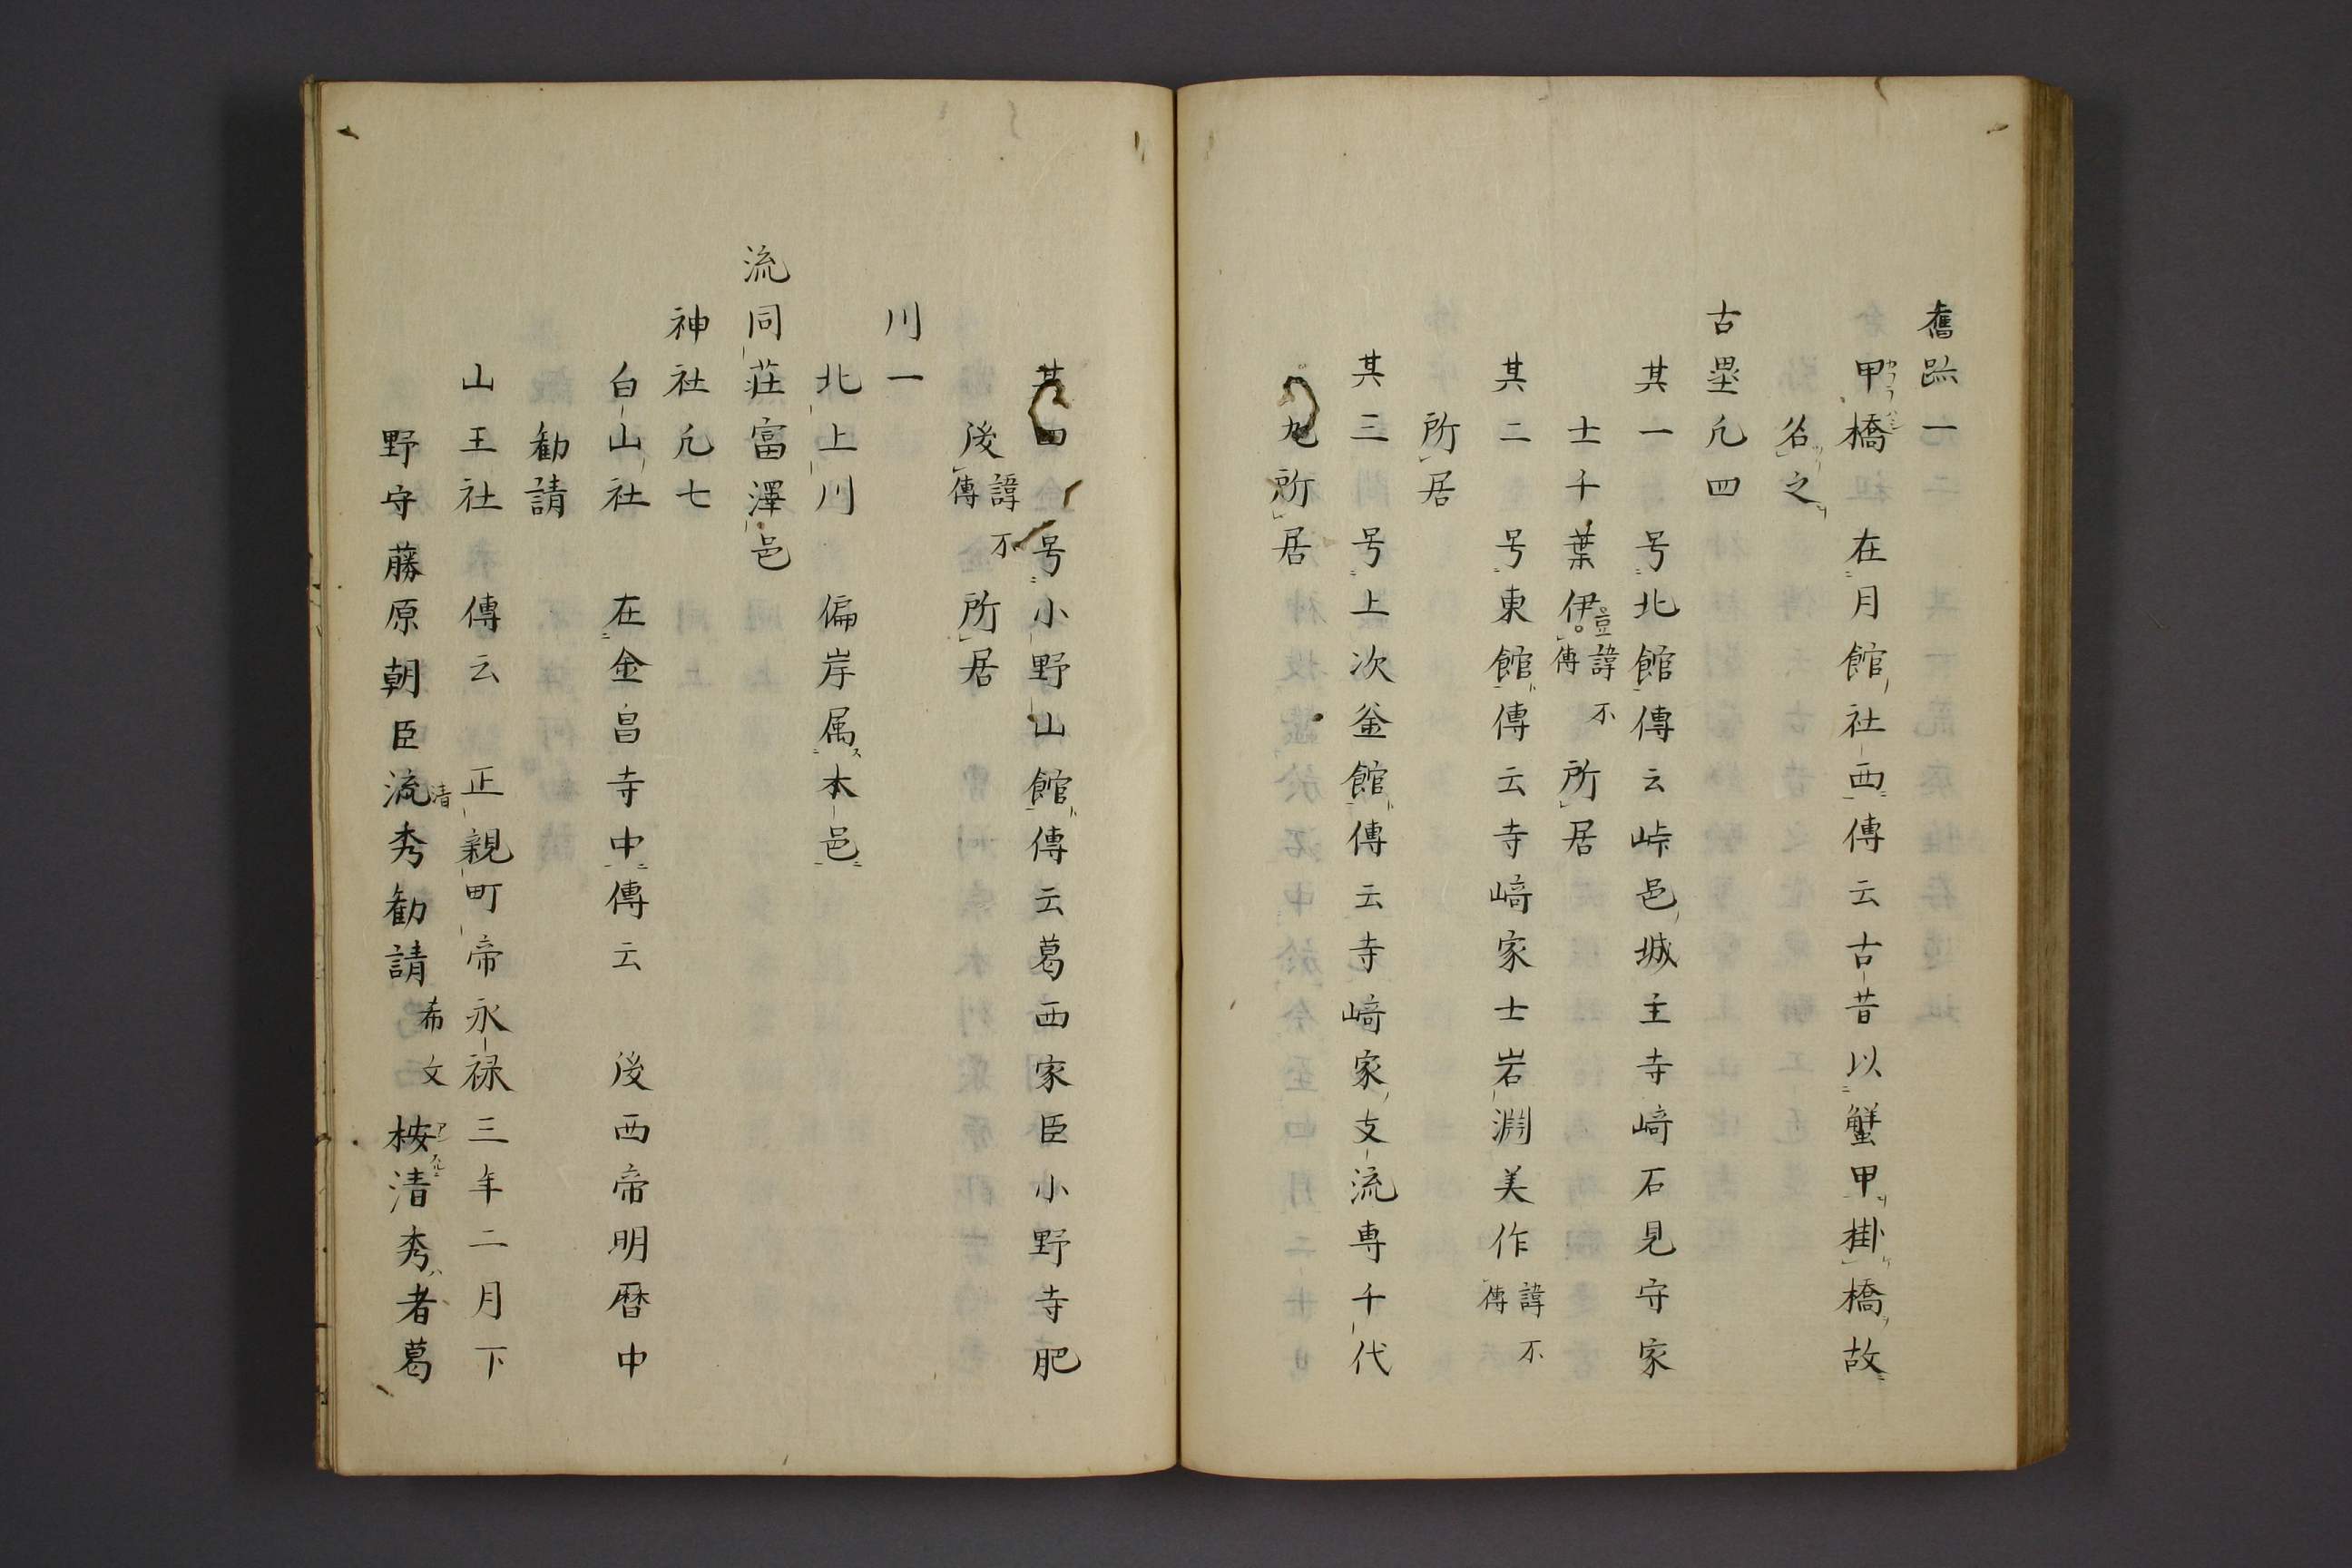 舊跡一
甲橋　在月館社西傳云古昔以蟹甲掛橋故
名之
古壘凢四
其一　号北館傳云峠邑城主寺﨑石見守家
士千葉伊豆諱不傳所居
其二　号東館傳云寺﨑家士岩渕美作諱不傳
所居
其三　号上次釜館傳云寺﨑家支流専千代
丸所居
其四　号小野山館傳云葛西家臣小野寺肥
後諱不傳所居
川一
北上川　偏岸属本邑
流同荘富澤邑
神社凢七
白山社　在金昌寺中傳云　後西帝明暦中
勧請
山王社　傳云　正親町帝永禄三年二月下
野守藤原朝臣流清秀勧請希文桉清秀者葛